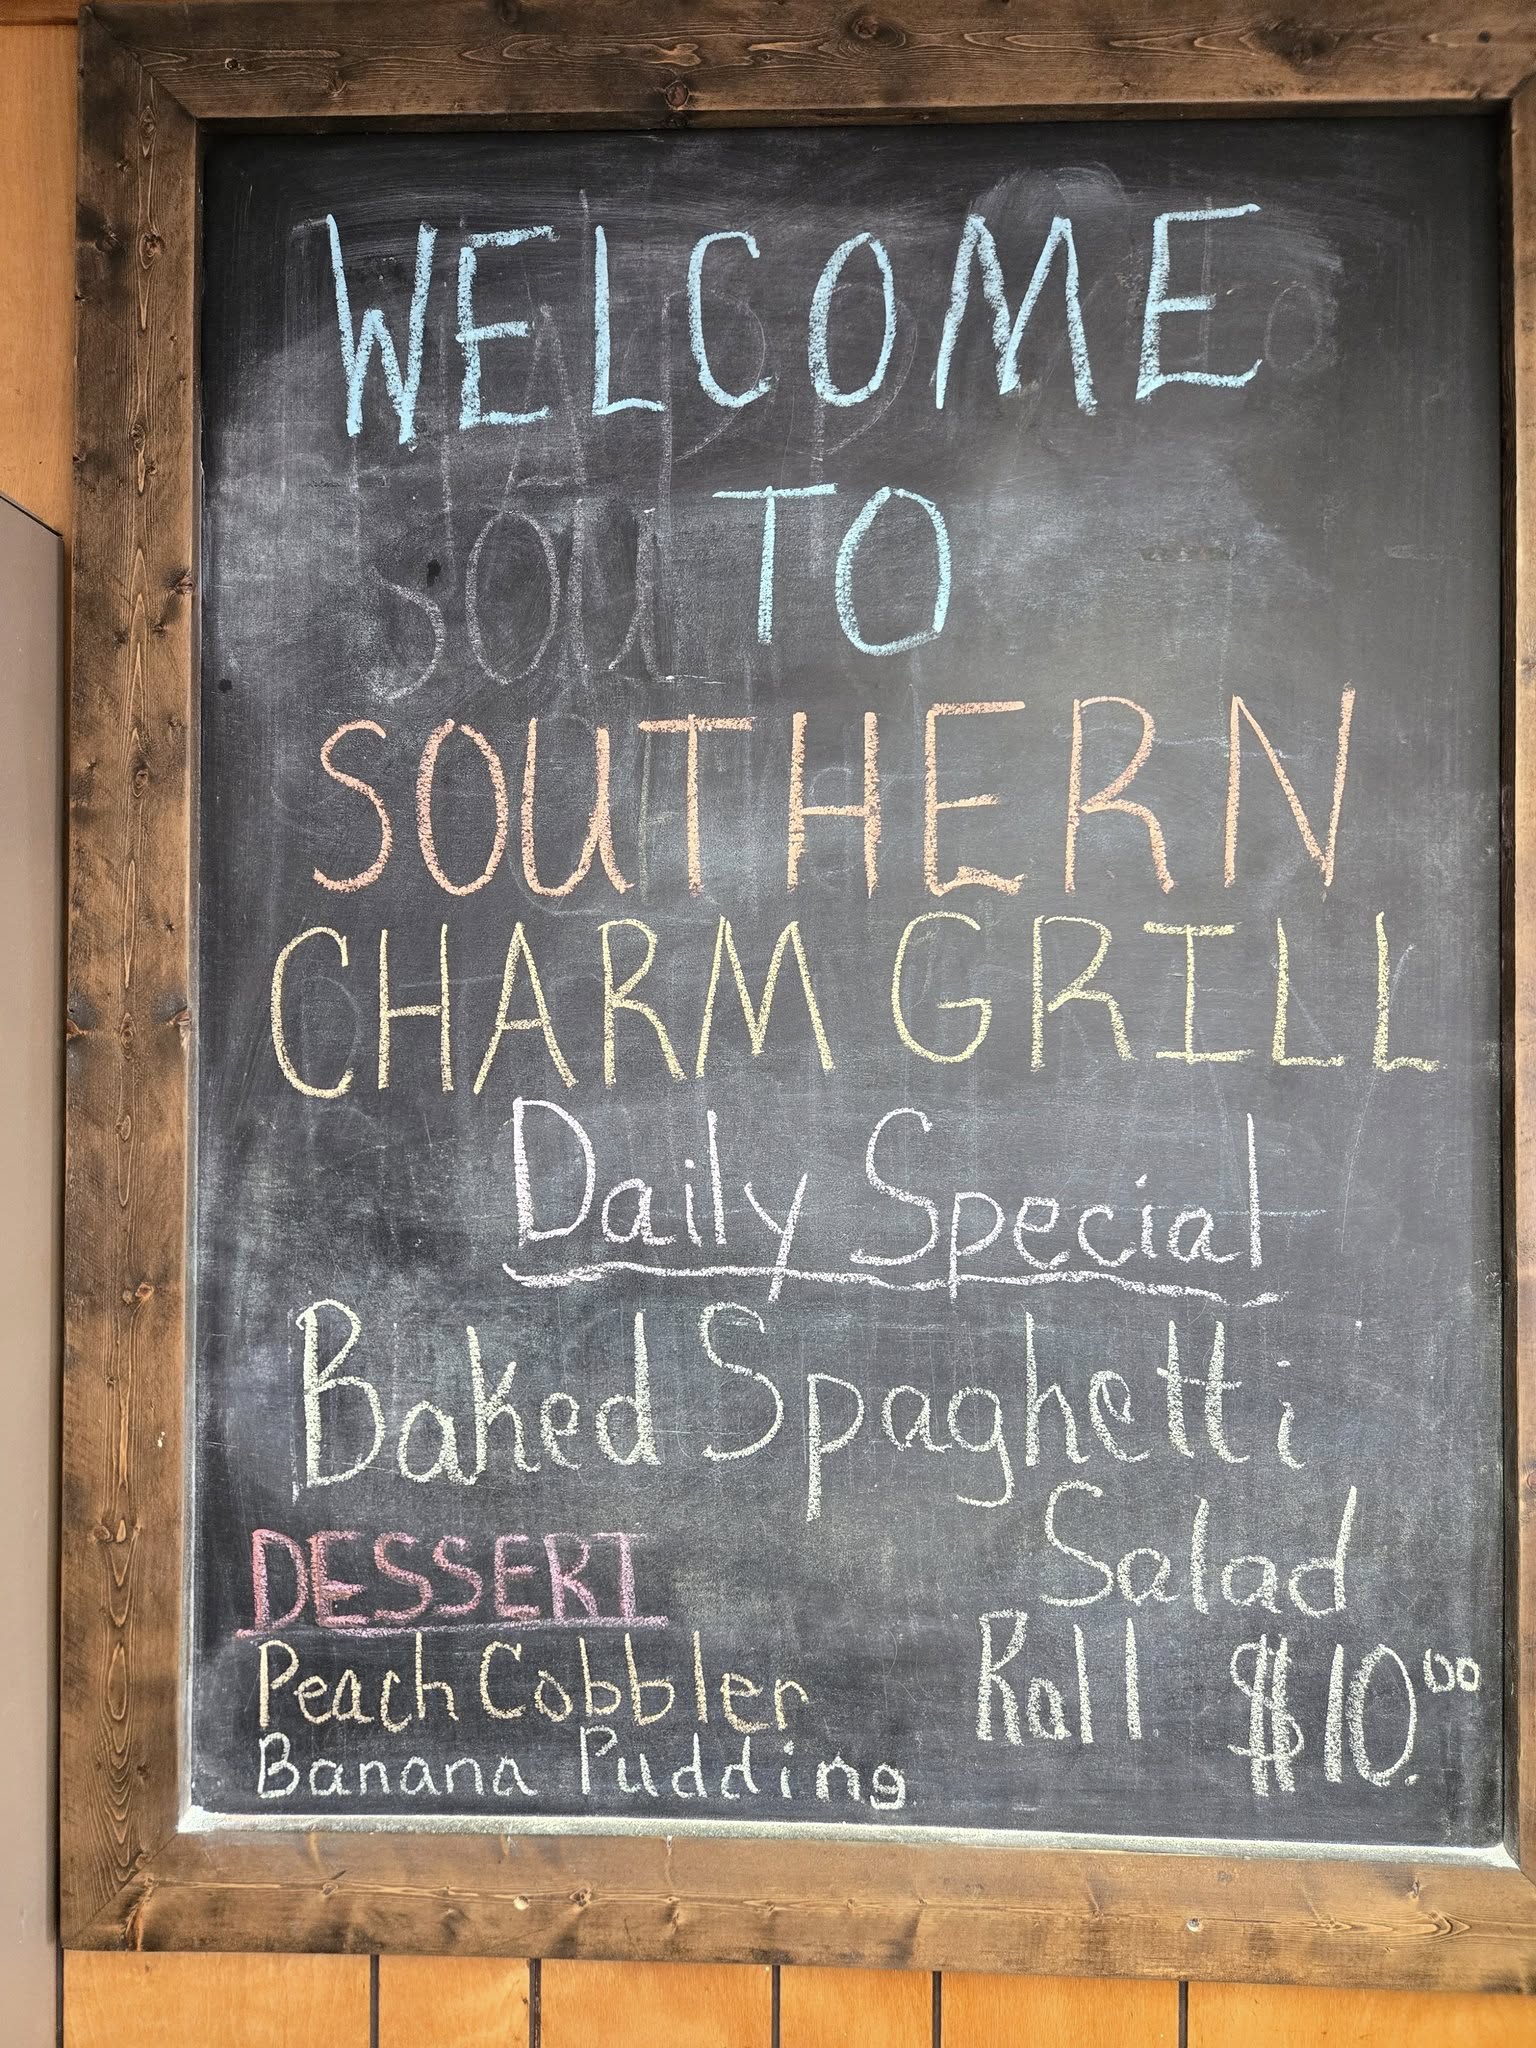 WELCOME
TO
SOUTHERN
CHARM GRILL
Daily Special
Baked Spaghetti
Salad
Roll $10.00
DESSERT
Peach Cobbler
Banana Pudding